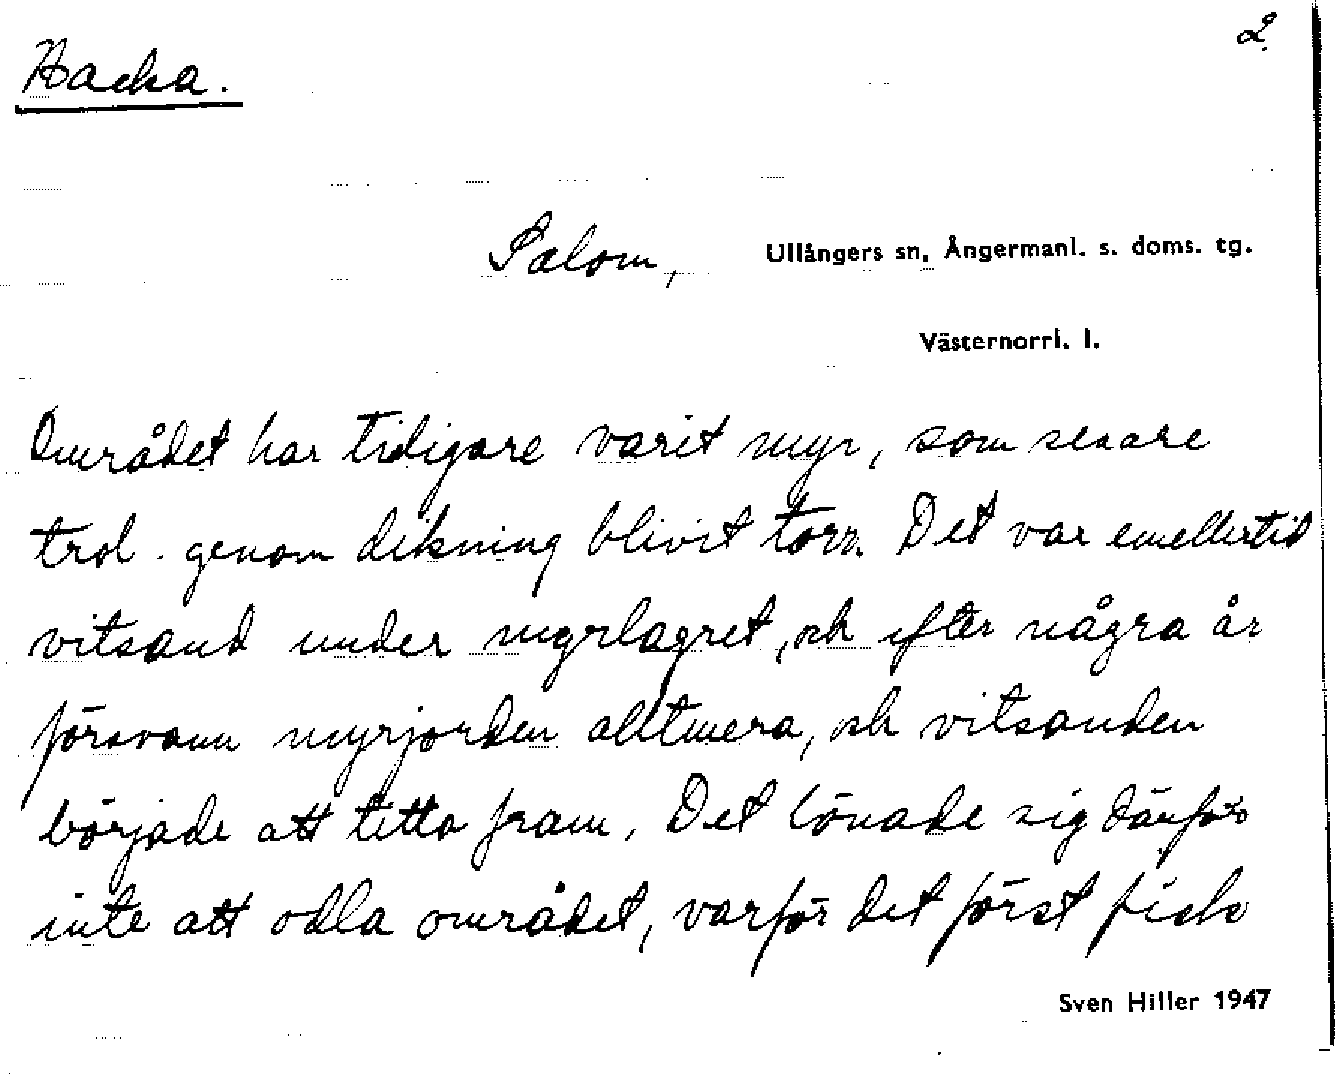 2.
Hacka.
Salom, Ullångers sn, Ångermanl. s. doms. tg.
Västernorrl. l.
Området har tidigare varit myr, som senare
trol. genom dikning blivit torr. Det var emellertid
vitsand under myrlagret, och efter några år
försvann myrjorden alltmera, och vitsanden
började att titta fram. Det lönade sig därför
inte att odla området, varför det först fick
Sven Hiller 1947